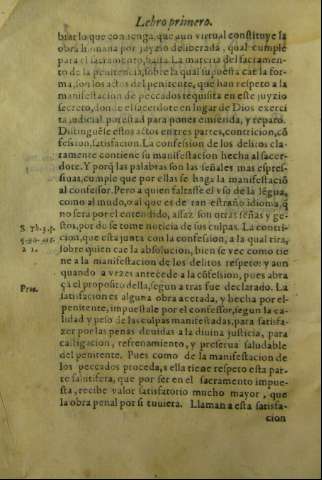 Lebro primero.
brar lo que con tenga, que aun virtual constituye la
obra humana por juyzio deliberada, qual cumple
para el sacramento, basta. La materia del sacramen-
to de la penitencia, sobre la qual supuesta cae la for-
ma, son los actos del penitente, que han respeto a la
manifestacion de peccados requisita en este juyzio
secreto, donde el sacerdote en lugar de Dios exerci
ta judicial potestad para poner emienda, y reparo.
Distinguese estos actos en tres partes, contricion, cō
fession, satisfacion. La confession de los delitos cla-
ramente contiene su manifestacion hecha al sacer-
dote. Y porq̃ las palabras son las señales mas espres-
siuas, cumple que por ellas se haga la manifestació
al confessor. Pero a quien faltasse el vso de la lẽgua,
como al mudo, o al que es de tan estraño idioma, q̃
no sera por el entendido, assaz son otras señas y ge-
stos, por do se tome noticia de sus culpas. La contri-
cion, que esta junta con la confession, a la qual tira,
sobre quien cae la absolucion, bien se vee como tie
ne a la manifestacion de los delitos respeto: y aun
quando a vezes antecede a la cõfession, pues abra
ça el proposito della, segun a tras fue declarado. La
satisfacion es alguna obra acetada, y hecha por el
penitente, impuestale por el confessor, segun la ca-
lidad y peso de las culpas manifestadas, para satisfa-
zer por las penas deuidas a la diuina justicia, para
castigacion, refrenamiento, y preserua saludable
del penitente. Pues como de la manifestacion de
los peccados proceda, a ella tiene respeto esta par-
te satisfera, que por ser en el sacramento impue-
sta, recibe valor satisfatorio mucho mayor, que
la obra penal por si tuuiera. Llaman a esta satisfa-
cion
S. Th. 3. p.
q. 90. ar.
2.
Pros.